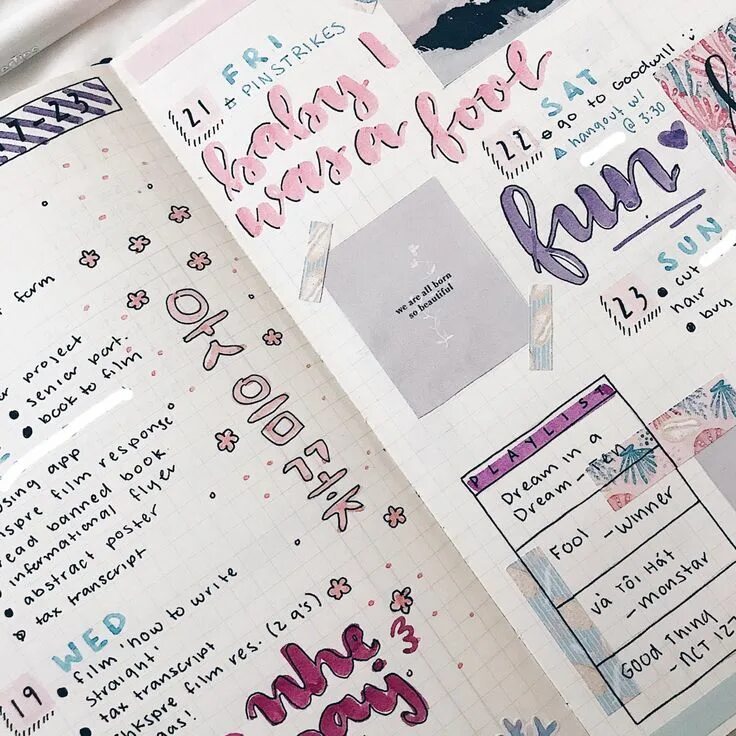 7-23
form
project
• senior part.
• book to film
app
film response
banned book
informational flyer
• abstract poster
tax transcript
WED
19
• film 'how to write
straight'
• tax transcript
film res. (2 q's)
nhe
21
FRI
# PINSTRIKES
baby I
was a fool
SAT
22
go to Goodwill :)
△ hangout w/
@ 3:30
fun
SUN
23
• cut
hair
• buy
we are all born
so beautiful
PLAYLIST
Dream in a
Dream - Ten
Fool - Winner
Và Tôi Hát
- Monstar
Good Thing
- NCT 127